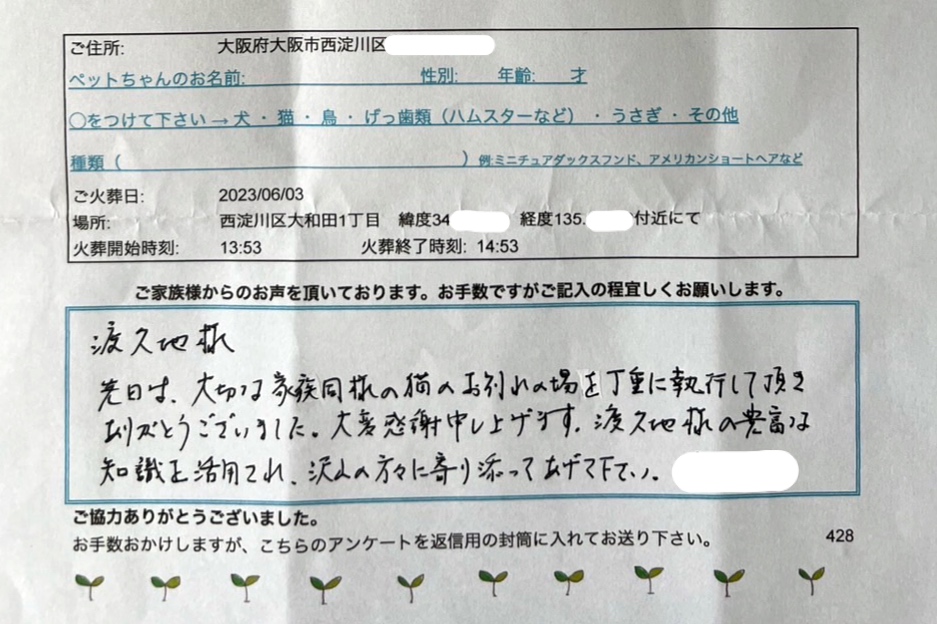 ご住所: 大阪府大阪市西淀川区
ペットちゃんのお名前: 性別: 年齢: 才
○をつけて下さい→犬・猫・鳥・げっ歯類(ハムスターなど)・うさぎ・その他
種類( )例:ミニチュアダックスフンド、アメリカンショートヘアなど
ご火葬日: 2023/06/03
場所: 西淀川区大和田1丁目 緯度34 経度135. 付近にて
火葬開始時刻: 13:53 火葬終了時刻: 14:53
ご家族様からのお声を頂いております。お手数ですがご記入の程宜しくお願いします。
渡久地様
先日は、大切な家族同様の猫のお別れの場を丁重に執行して頂き
ありがとうございました。大変感謝申し上げます。渡久地様の豊富な
知識を活用され、沢山の方々に寄り添ってあげて下さい。
ご協力ありがとうございました。
お手数おかけしますが、こちらのアンケートを返信用の封筒に入れてお送り下さい。 428